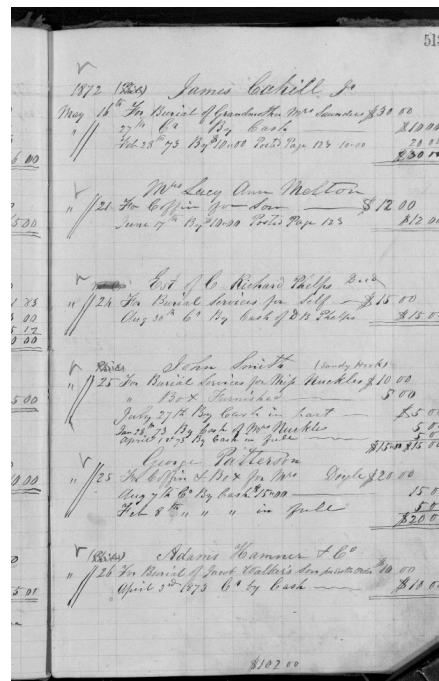 513
1872 James Cahill Jr
May 16th For Burial of Grandmother Mrs Saunders $30 00
" 27th Cr By Cash $10 00
Feb 28th 73 By $10.00 Posted Page 123 10.00 20 00
$30 00
Mrs Lucy Ann Melton
" 21 For Coffin for Son $12 00
June 17th By 10.00 Posted Page 123 $12 00
Est of C Richard Phelps Decd
" 24 For Burial Services for Self $15 00
Aug 30th Cr By Cash of D B Phelps $15 00
John Smith (Sandy Hook)
" 25 For Burial Services for Miss Nuckles $10 00
" Box Furnished 5 00
July 27th By Cash in part $5 00
Jan 28th 73 By Cash of Mrs Nuckles 5 00
April 1st 75 By Cash in full 5 00
$15.00 $15 00
George Patterson
" 25 For Coffin & Box for Mrs Doyle $20 00
Aug 7th Cr By Cash $15.00 15 00
Feb 8th " " " in full 5 00
$20 00
Adams Hamner & Co
" 26 For Burial of Jacob Walker's Son $10 00
April 3rd 1873 Cr by Cash $10 00
$102 00